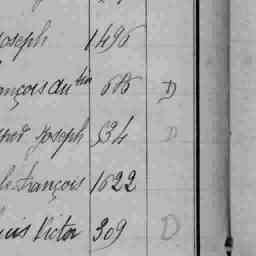 Joseph 1496
ançois du 686 D
Joseph 534 D
le François 1622
uis Victor 309 D